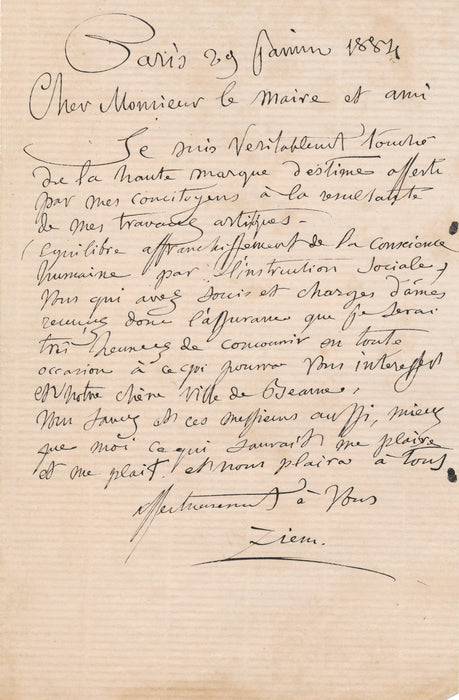 Paris 29 Janvier 1884
Cher Monsieur le Maire et ami
Je suis veritablement touché
de la haute marque d'estime offerte
par mes concitoyens à la resultante
de mes travaux artistiques -
(Equilibre affranchissement de la Conscience
humaine par l'instruction sociale)
Vous qui avez soucis et charges d'âmes
recevez donc l'assurance que je serai
très heureux de concourir en toute
occasion à ce qui pourra vous interesser
et notre chère Ville de Beaune,
Vous savez et ces messieurs aussi, mieux
que moi ce qui saurait me plaire
et me plait et nous plaira à tous
affectueusement à Vous
Ziem.